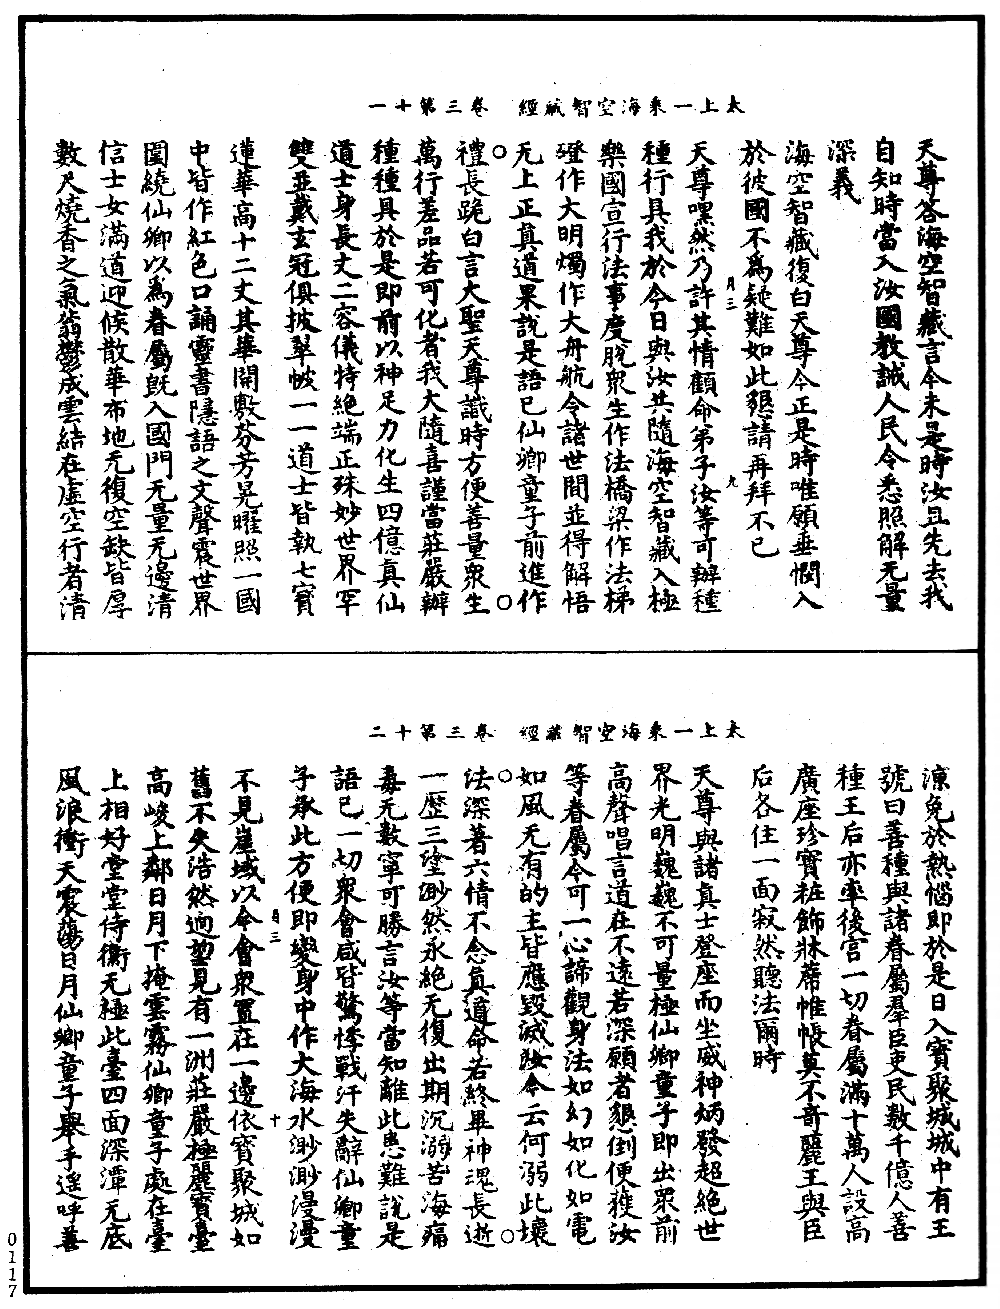 太上一乘海空智藏經　卷三第十一
天尊答海空智藏言今未是時汝且先去我
自知時當入汝國教誡人民令悉照解无量
深義
海空智藏復白天尊今正是時唯願垂憫入
於彼國不爲疑難如此懇請再拜不已
月三　九
天尊嘿然乃許其情顧命弟子汝等可辦種
種行具我於今日與汝共隨海空智藏入極
樂國宣行法事度脫衆生作法橋梁作法梯
磴作大明燭作大舟航令諸世間並得解悟
无上正真道果說是語已仙卿童子前進作
禮長跪白言大聖天尊識時方便善量衆生
萬行差品若可化者我大隨喜謹當莊嚴辦
種種具於是即前以神足力化生四億真仙
道士身長丈二容儀特絶端正殊妙世界罕
雙並戴玄冠俱披翠帔一一道士皆執七寳
蓮華高十二丈其華開敷芬芳晃曜照一國
中皆作紅色口誦靈書隱語之文聲震世界
圍繞仙卿以為眷屬旣入國門无量无邊清
信士女滿道迎候散華布地无復空缺皆厚
數尺燒香之氣蓊鬱成雲結在虛空行者清
太上一乘海空智藏經　卷三第十二
涼免於熱惱即於是日入寳聚城城中有王
號曰善種與諸眷屬羣臣吏民數千億人善
種王后亦率後宮一切眷屬滿十萬人設高
廣座珍寳粧飾牀蓆帷帳莫不竒麗王與臣
后各住一面寂然聽法爾時
天尊與諸真士登座而坐威神炳發超絶世
界光明巍巍不可量極仙卿童子即出衆前
高聲唱言道在不遠若深願者懇倒便獲汝
等眷屬今可一心諦觀身法如幻如化如電
如風无有的主皆應毀滅汝今云何溺此壞
法深著六情不念真道命若終畢神魂長逝
一歷三塗渺然永絶无復出期沉溺苦海痛
毒无數寧可勝言汝等當知離此患難說是
語已一切衆會咸皆驚悸戰汗失辭仙卿童
子承此方便即變身中作大海水渺渺漫漫
月三　十
不見崖域以令會衆置在一邊依寳聚城如
舊不失浩然逈望見有一洲莊嚴極麗寳臺
高峻上鄰日月下掩雲霧仙卿童子處在臺
上相好堂堂侍衛无極此臺四面深潭无底
風浪衝天震蕩日月仙卿童子舉手遥呼善
0117